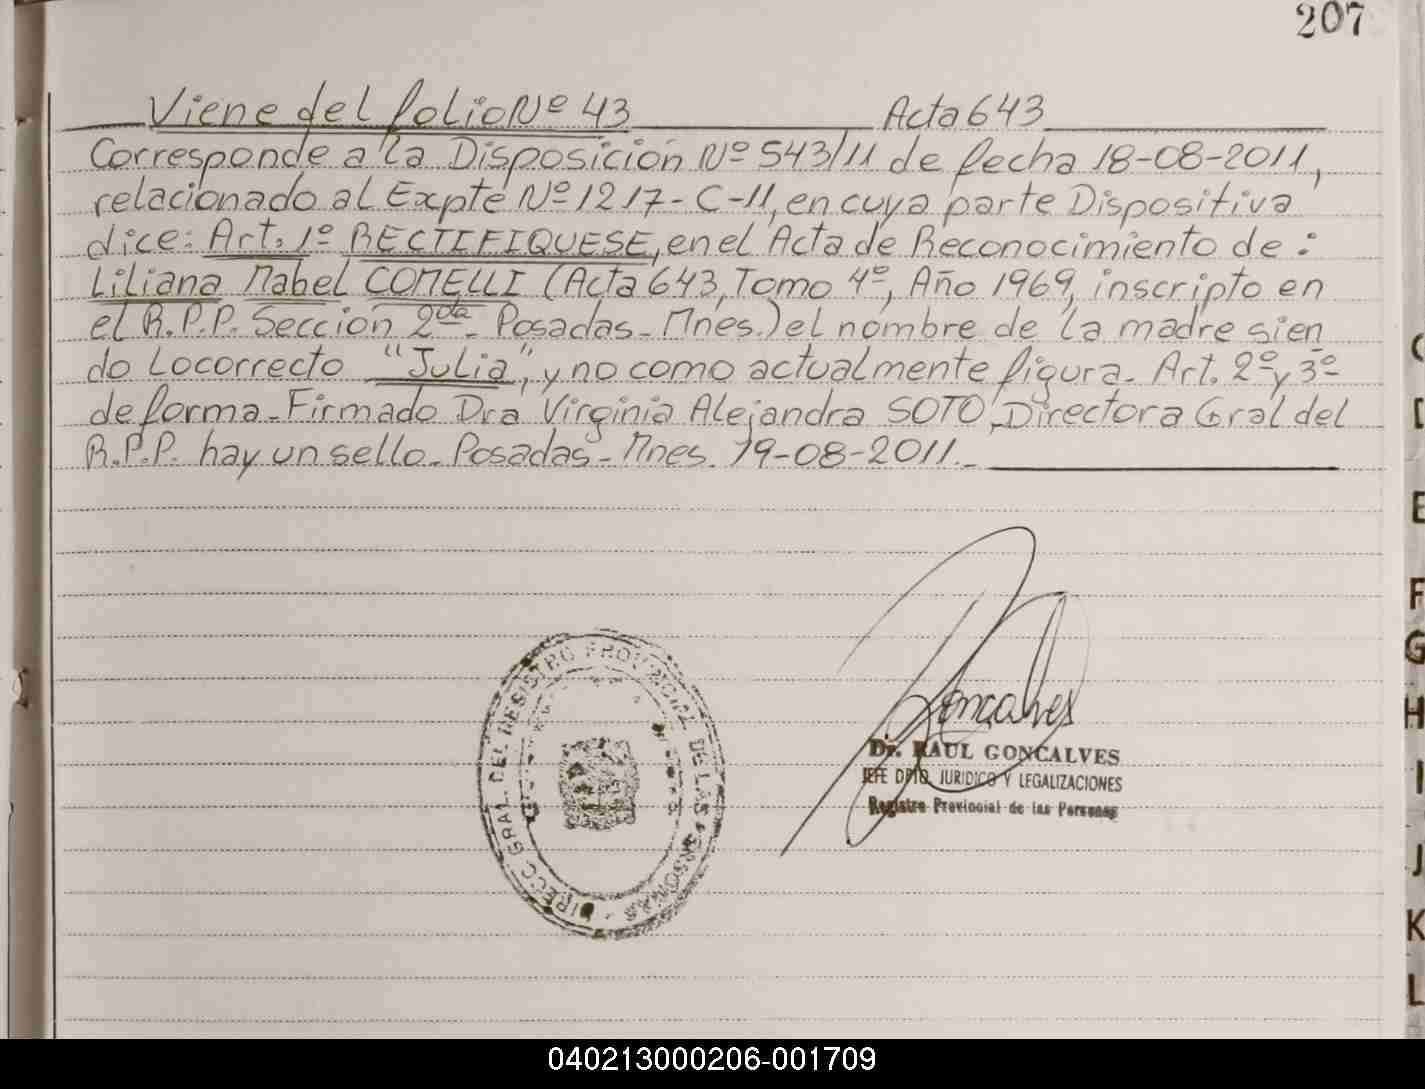 207
Viene del folio Nº 43 Acta 643
Corresponde a la Disposición Nº 543/11 de fecha 18-08-2011,
relacionado al Expte Nº 1217-C-11, en cuya parte Dispositiva
dice: Art. 1º RECTIFIQUESE, en el Acta de Reconocimiento de:
Liliana Mabel COMELLI (Acta 643, Tomo 4º, Año 1969, inscripto en
el R.P.P. Sección 2da - Posadas - Mnes.) el nombre de la madre sien
do lo correcto "Julia", y no como actualmente figura. Art. 2º y 3º
de forma - Firmado Dra Virginia Alejandra SOTO, Directora Gral del
R.P.P. hay un sello - Posadas - Mnes. 19-08-2011.-
DIRECC GRAL. DEL REGISTRO PROVINCIAL DE LAS PERSONAS
Goncalves
Dr. RAUL GONCALVES
JEFE DPTO. JURIDICO Y LEGALIZACIONES
Registro Provincial de las Personas
C
D
E
F
G
H
I
J
K
L
040213000206-001709